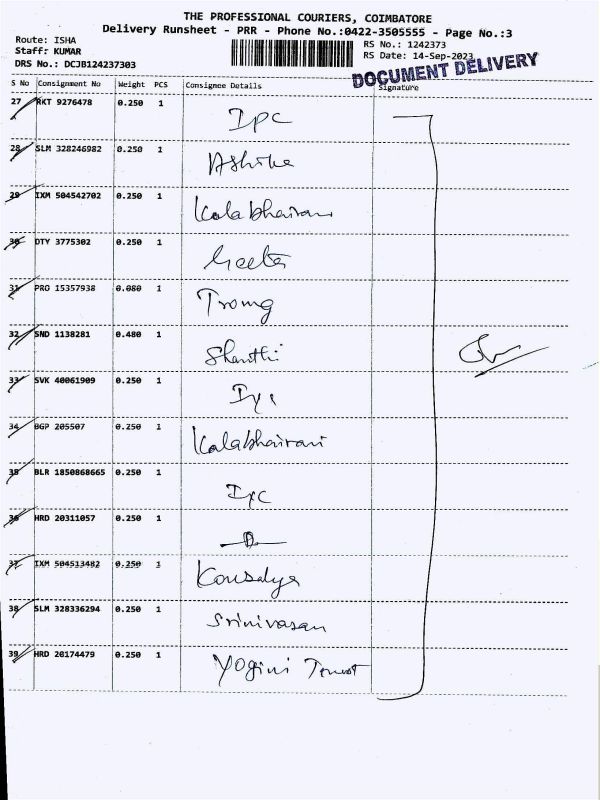 THE PROFESSIONAL COURIERS, COIMBATORE
Delivery Runsheet - PRR - Phone No.:0422-3505555 - Page No.:3
Route: ISHA
Staff: KUMAR
DRS No.: DCJB124237303
RS No.: 1242373
RS Date: 14-Sep-2023
DOCUMENT DELIVERY
S No Consignment No Weight PCS Consignee Details Signature
27 RKT 9276478 0.250 1 IPC
28 SLM 328246982 0.250 1
29 IXM 504542702 0.250 1 Kalabhairavi
30 DTY 3775302 0.250 1 Geeta
31 PRO 15357938 0.080 1
32 SND 1138281 0.480 1 Shanthi
33 SVK 40061909 0.250 1
34 BGP 205507 0.250 1 Kalabhairavi
35 BLR 1850868665 0.250 1 IYC
36 HRD 20311057 0.250 1
37 IXM 504513482 0.250 1 Kousalya
38 SLM 328336294 0.250 1 Srinivasan
39 HRD 20174479 0.250 1 Yogini Trust